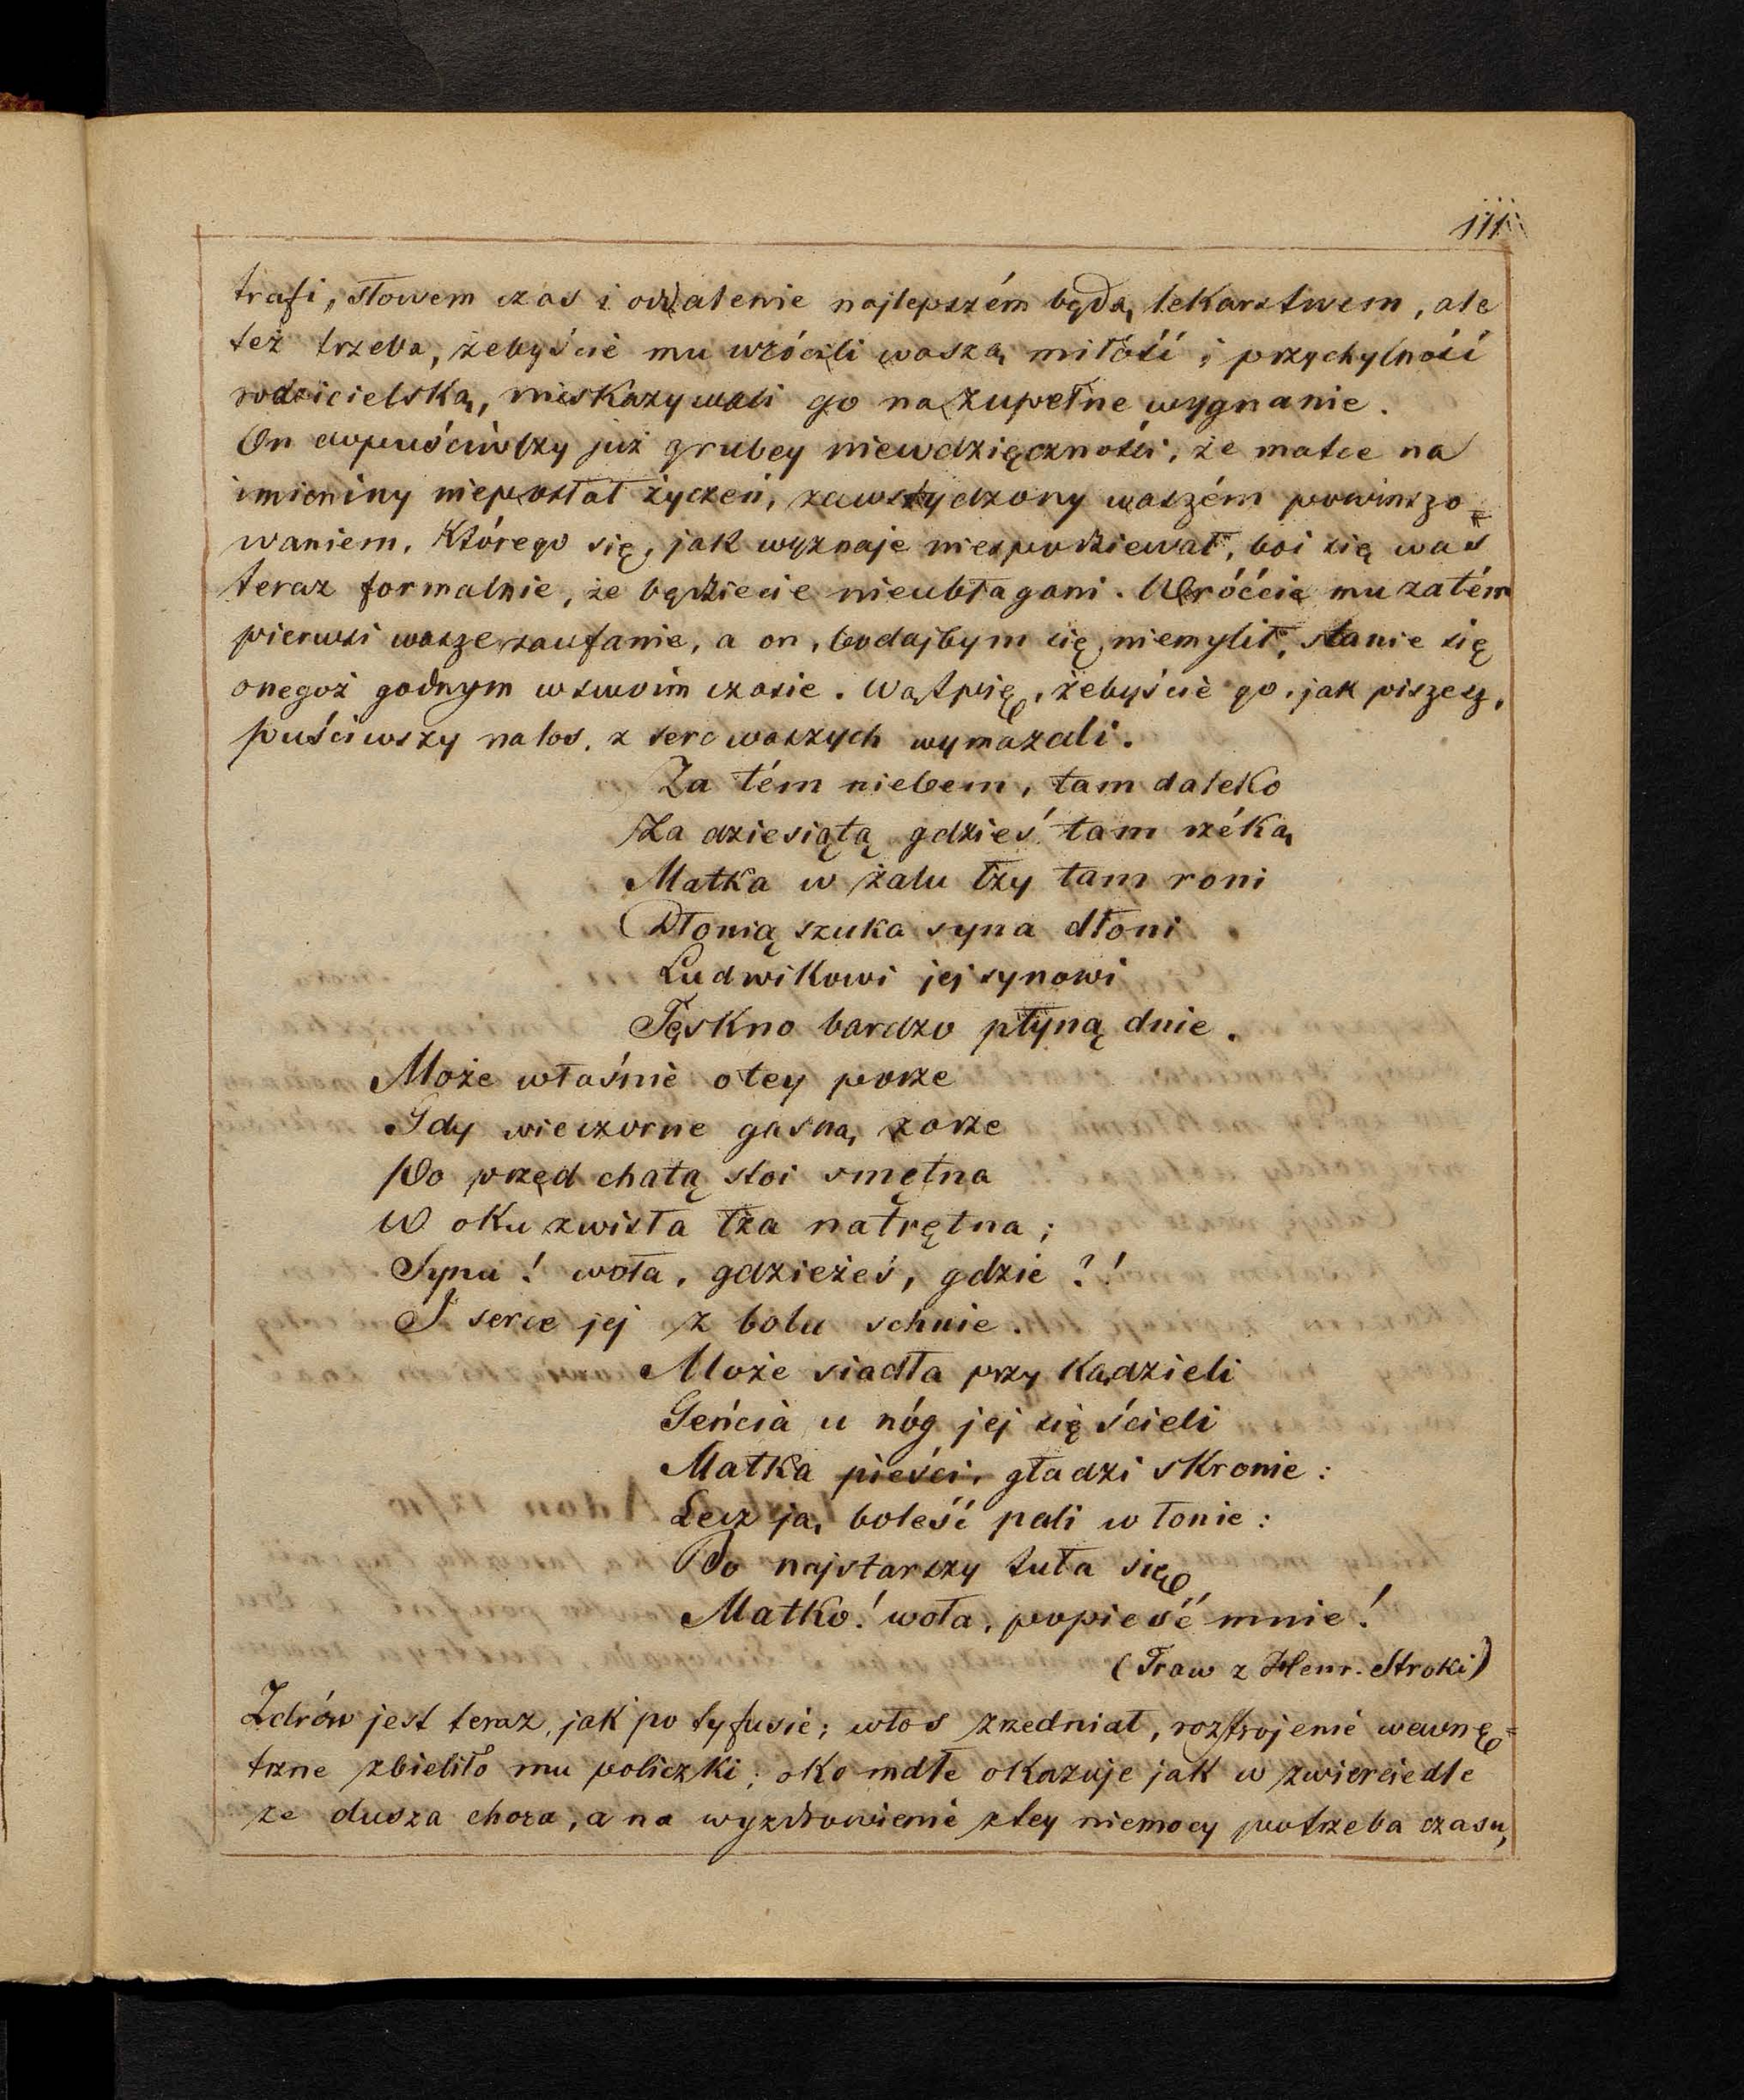 111
trafi, słowem czas i oddalenie najlepszém będą lekarstwem, ale
też trzeba, żebyście mu wrócili waszą miłość i przychylność
rodzicielską, nieskazywali go na zupełne wygnanie.
On dopuściwszy już grubey niewdzięczności, że matce na
imieniny nieposłał życzeń, zawstydzony waszém powinszo=
waniem, którego się, jak wyznaje niespodziewał, boi się was
teraz formalnie, że będziecie nieubłagani. Wróćcie mu zatém
pierwsi wasze zaufanie, a on, bodajbym się niemylił, stanie się
onegoż godnym w swoim czasie. Wątpię, żebyście go, jak piszesz,
puściwszy na los, z serc waszych wymazali.
Za tém niebem, tam daleko
Za dziesiątą gdzieś tam rzéką
Matka w żalu łzy tam roni
Dłonią szuka syna dłoni
Ludwikowi jej synowi
Tęskno bardzo płyną dnie.
Może właśnie o tey porze
Gdy wieczorne gasną zorze
Po przed chatą stoi smętna
W oku zwisła łza natrętna;
Synu! woła, gdzieżeś, gdzie?!
I serce jej z bolu schnie.
Może siadła przy kądzieli
Geńcia u nóg jej się ścieli
Matka pieści, gładzi skronie:
Lecz ją boleść pali w łonie:
Bo najstarszy tuła się
Matko! woła, popieść mnie!
(Traw z Henr. Stroki)
Zdrów jest teraz, jak po tyfusie; włos zrzedniał, roztrojenie wewnę=
trzne zbieliło mu policzki; oko mdłe okazuje jak w zwierciedle
że dusza chora, a na wyzdrowienie z tey niemocy potrzeba czasu,